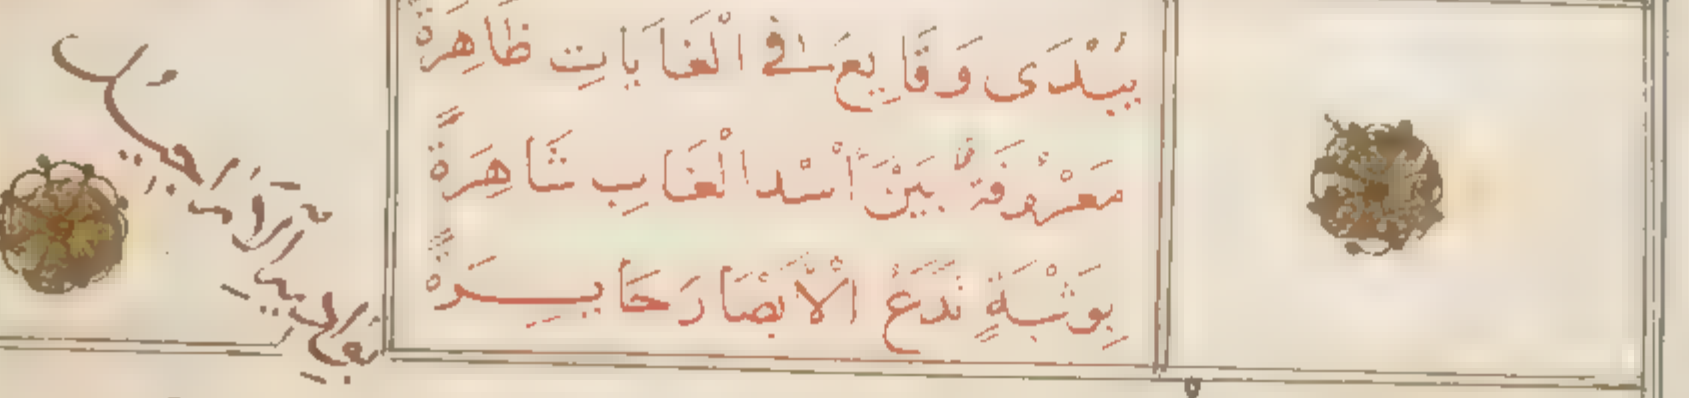 يُبْدَى وَقَايِعَ فِي الْغَابَاتِ ظَاهِرَةً
مَعْرُوفَةٌ بَيْنَ أُسْدِ الْغَابِ شَاهِرَةً
بِوَثْبَةٍ تَدَعُ الْأَبْصَارَ حَايِرَةً